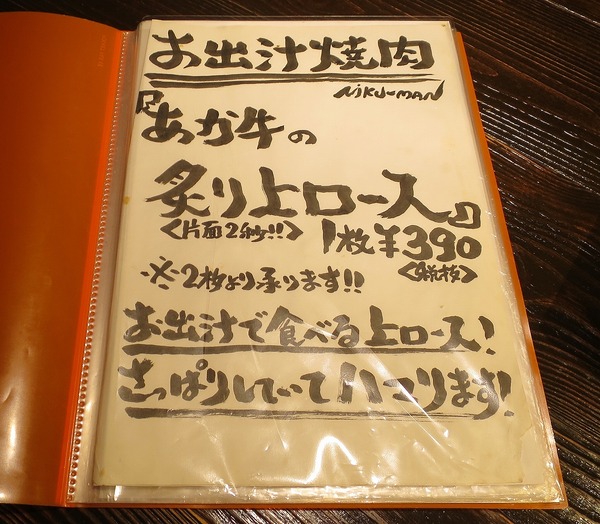 お出汁焼肉
NiKU-MAN
あか牛の
炙り上ロース
<片面2秒!!>
1枚¥390
<税抜>
※2枚より承ります!!
お出汁で食べる上ロース!
さっぱりしていてハマります!